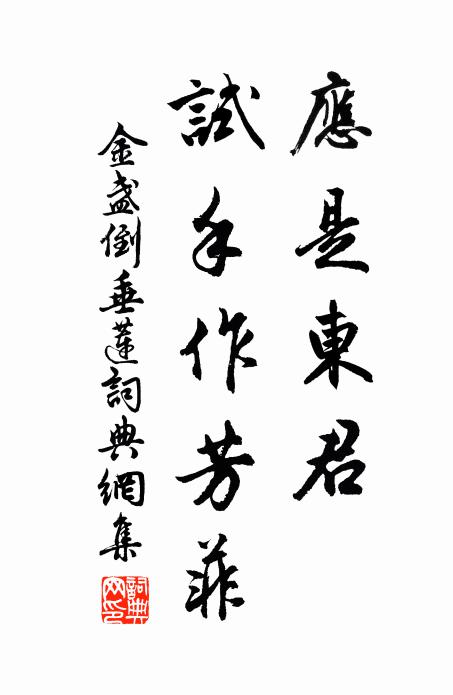 應是東君
試手作芳菲
金盞倒垂蓮詞典網集
詞典网印